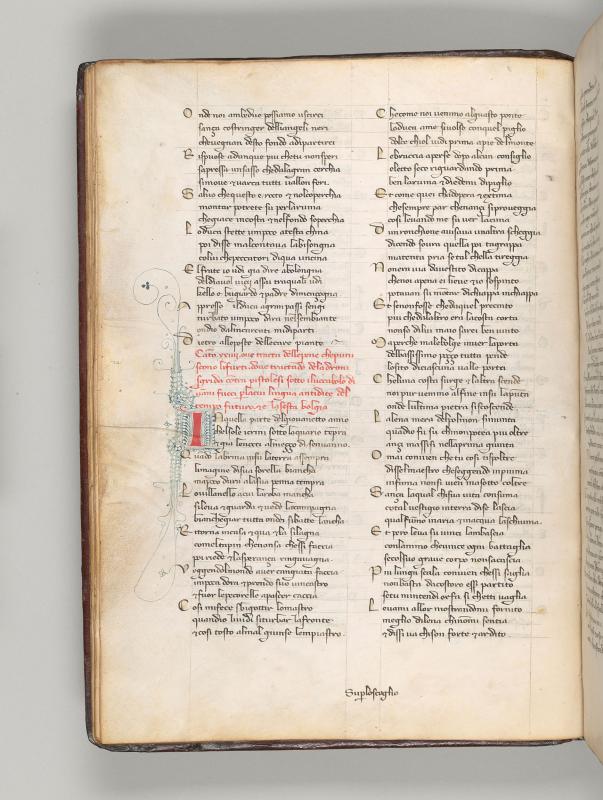 Onde noi ambedue possiamo uscirci
sança costringer delliangeli neri
chevegnan desto fondo adipartirci
Rispuose adunque piu chetu nonsperi
sapressa unsasso chedalagran cerchia
simoue & uarca tutti iuallon feri
Saluo chequesto e rotto & nolcoperchia
montar potrete su perlaruina
chegiace incosta & nelfondo soperchia
Loduca stette unpoco atesta china
poi disse malcontaua labisongna
colui chepeccatori diqua uncina
Elfrate io udi gia dire abolongna
deldiauol uicij assai traquali udi
bello e bugiardo & padre dimençogna
Appresso lduca agran passi sengi
turbato unpoco dira nelsembiante
ondio dalincarcati midiparti
Dietro alleposte dellecare piante
Cato xxiiij oue tratta dellepene chepuni
scono lifurti doue trattando deladroni
sgrida contra pistolesi sotto iluocabolo di
uani fucci
tempo futuro & e lasesta bolgia
In quella parte delgiouanetto anno
chelsole icrini sotto laquario tepra
& gia lenocti almeçço di senuanno
Quando labrina insu laterra assempra
limagine disua sorella biancha
mapoco dura alasua penna tempra
Louillanello acui laroba mancha
sileua & guarda & uede lacampagna
biancheggiar tutta ondei sibatte lancha
Ritorna incasa & qua & la silagna
comeltapin chenonsa chessi faccia
poi riede & lasperança ringauagna
Veggendolmondo auer cangiata faccia
inpoco dora & prende suo uincastro
& fuor lepecorelle apascer caccia
Cosi mifece sbigottir lomastro
quandio liuidi siturbar lafronte
& cosi tosto almal giunse lempiastro
Checome noi uenimo alguasto ponte
loduca ame siuolse conquel piglio
dolce chio uidi prima apie delmonte
Lebraccia aperse dopo alcun consiglio
electo seco riguardando prima
ben laruina & diedemi dipiglio
Et come quei chadopera & extima
chesempre par chenançi siproueggia
cosi leuando me su uer lacima
Dun ronchione auisaua unaltra scheggia
dicendo soura quella poi tagrappa
matenta pria se tal chella tireggia
Nonera uia dauestito dicappa
chenoi apena ei lieue & io sospinto
potauam su montar dichiappa inchiappa
Et senonfosse chedaquel precinto
piu chedalaltro era lacosta corta
nonso dilui maio sarei ben uinto
Maperche malebolge inuer laporta
delbassissimo poçço tutta pende
losito diciascuna ualle porta
Chelluna costa surge & laltra scende
noi pur uenimo alfine insu lapunta
onde lultima pietra siscoscende
Lalena mera delpolmon simunta
quadio fui su chinonpotea piu oltre
ançi massisi nellaprima giunta
Omai conuien che tu cosi tispoltre
dissellmaestro cheseggendo inpiuma
infama nonsi uien nesotto coltre
Sança laqual chisua uita consuma
cotal uestigio interra dise lascia
qual fumo inaria & inacqua laschiuma
Et pero leua su uinci lambascia
conlanimo cheuince ogni battaglia
secolsuo graue corpo nonsaccascia
Piu lunga scala conuien chessi saglia
nonbasta dacostoro esser partito
setu mintendi orfa si chetti uaglia
Leuami allor mostrandomi fornito
meglio dilena chinomi sentia
& dissi ua chison forte & ardito
Suploscoglio